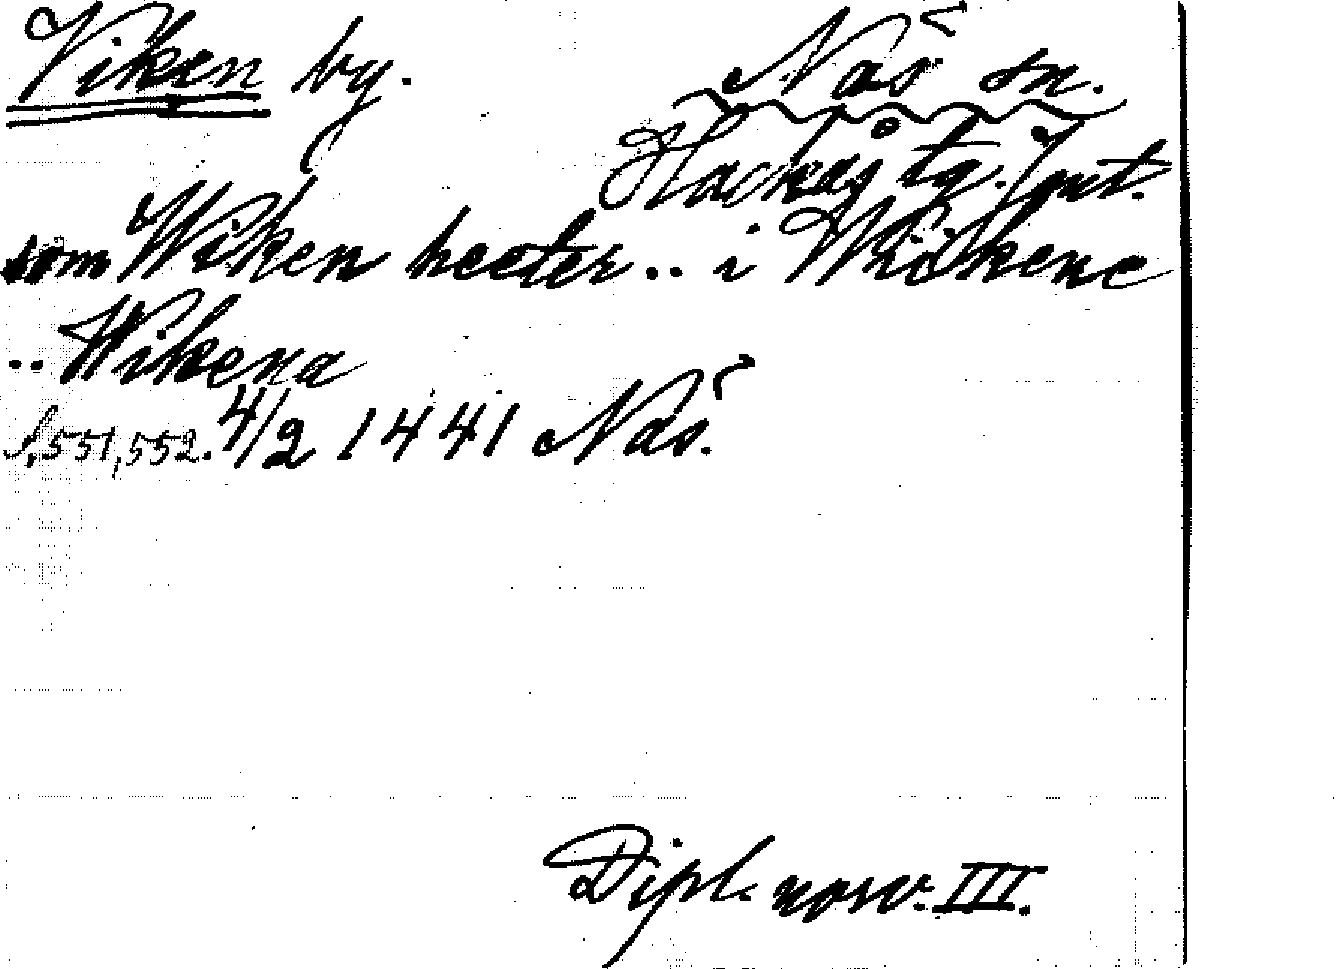 Viken by.
Näs sn.
Hackås tg. Jmt.
som Wiken heeter .. i Wiikene
.. Wikena
S. 551, 552. 4/2 1441 Näs.
Dipl. norv. III.